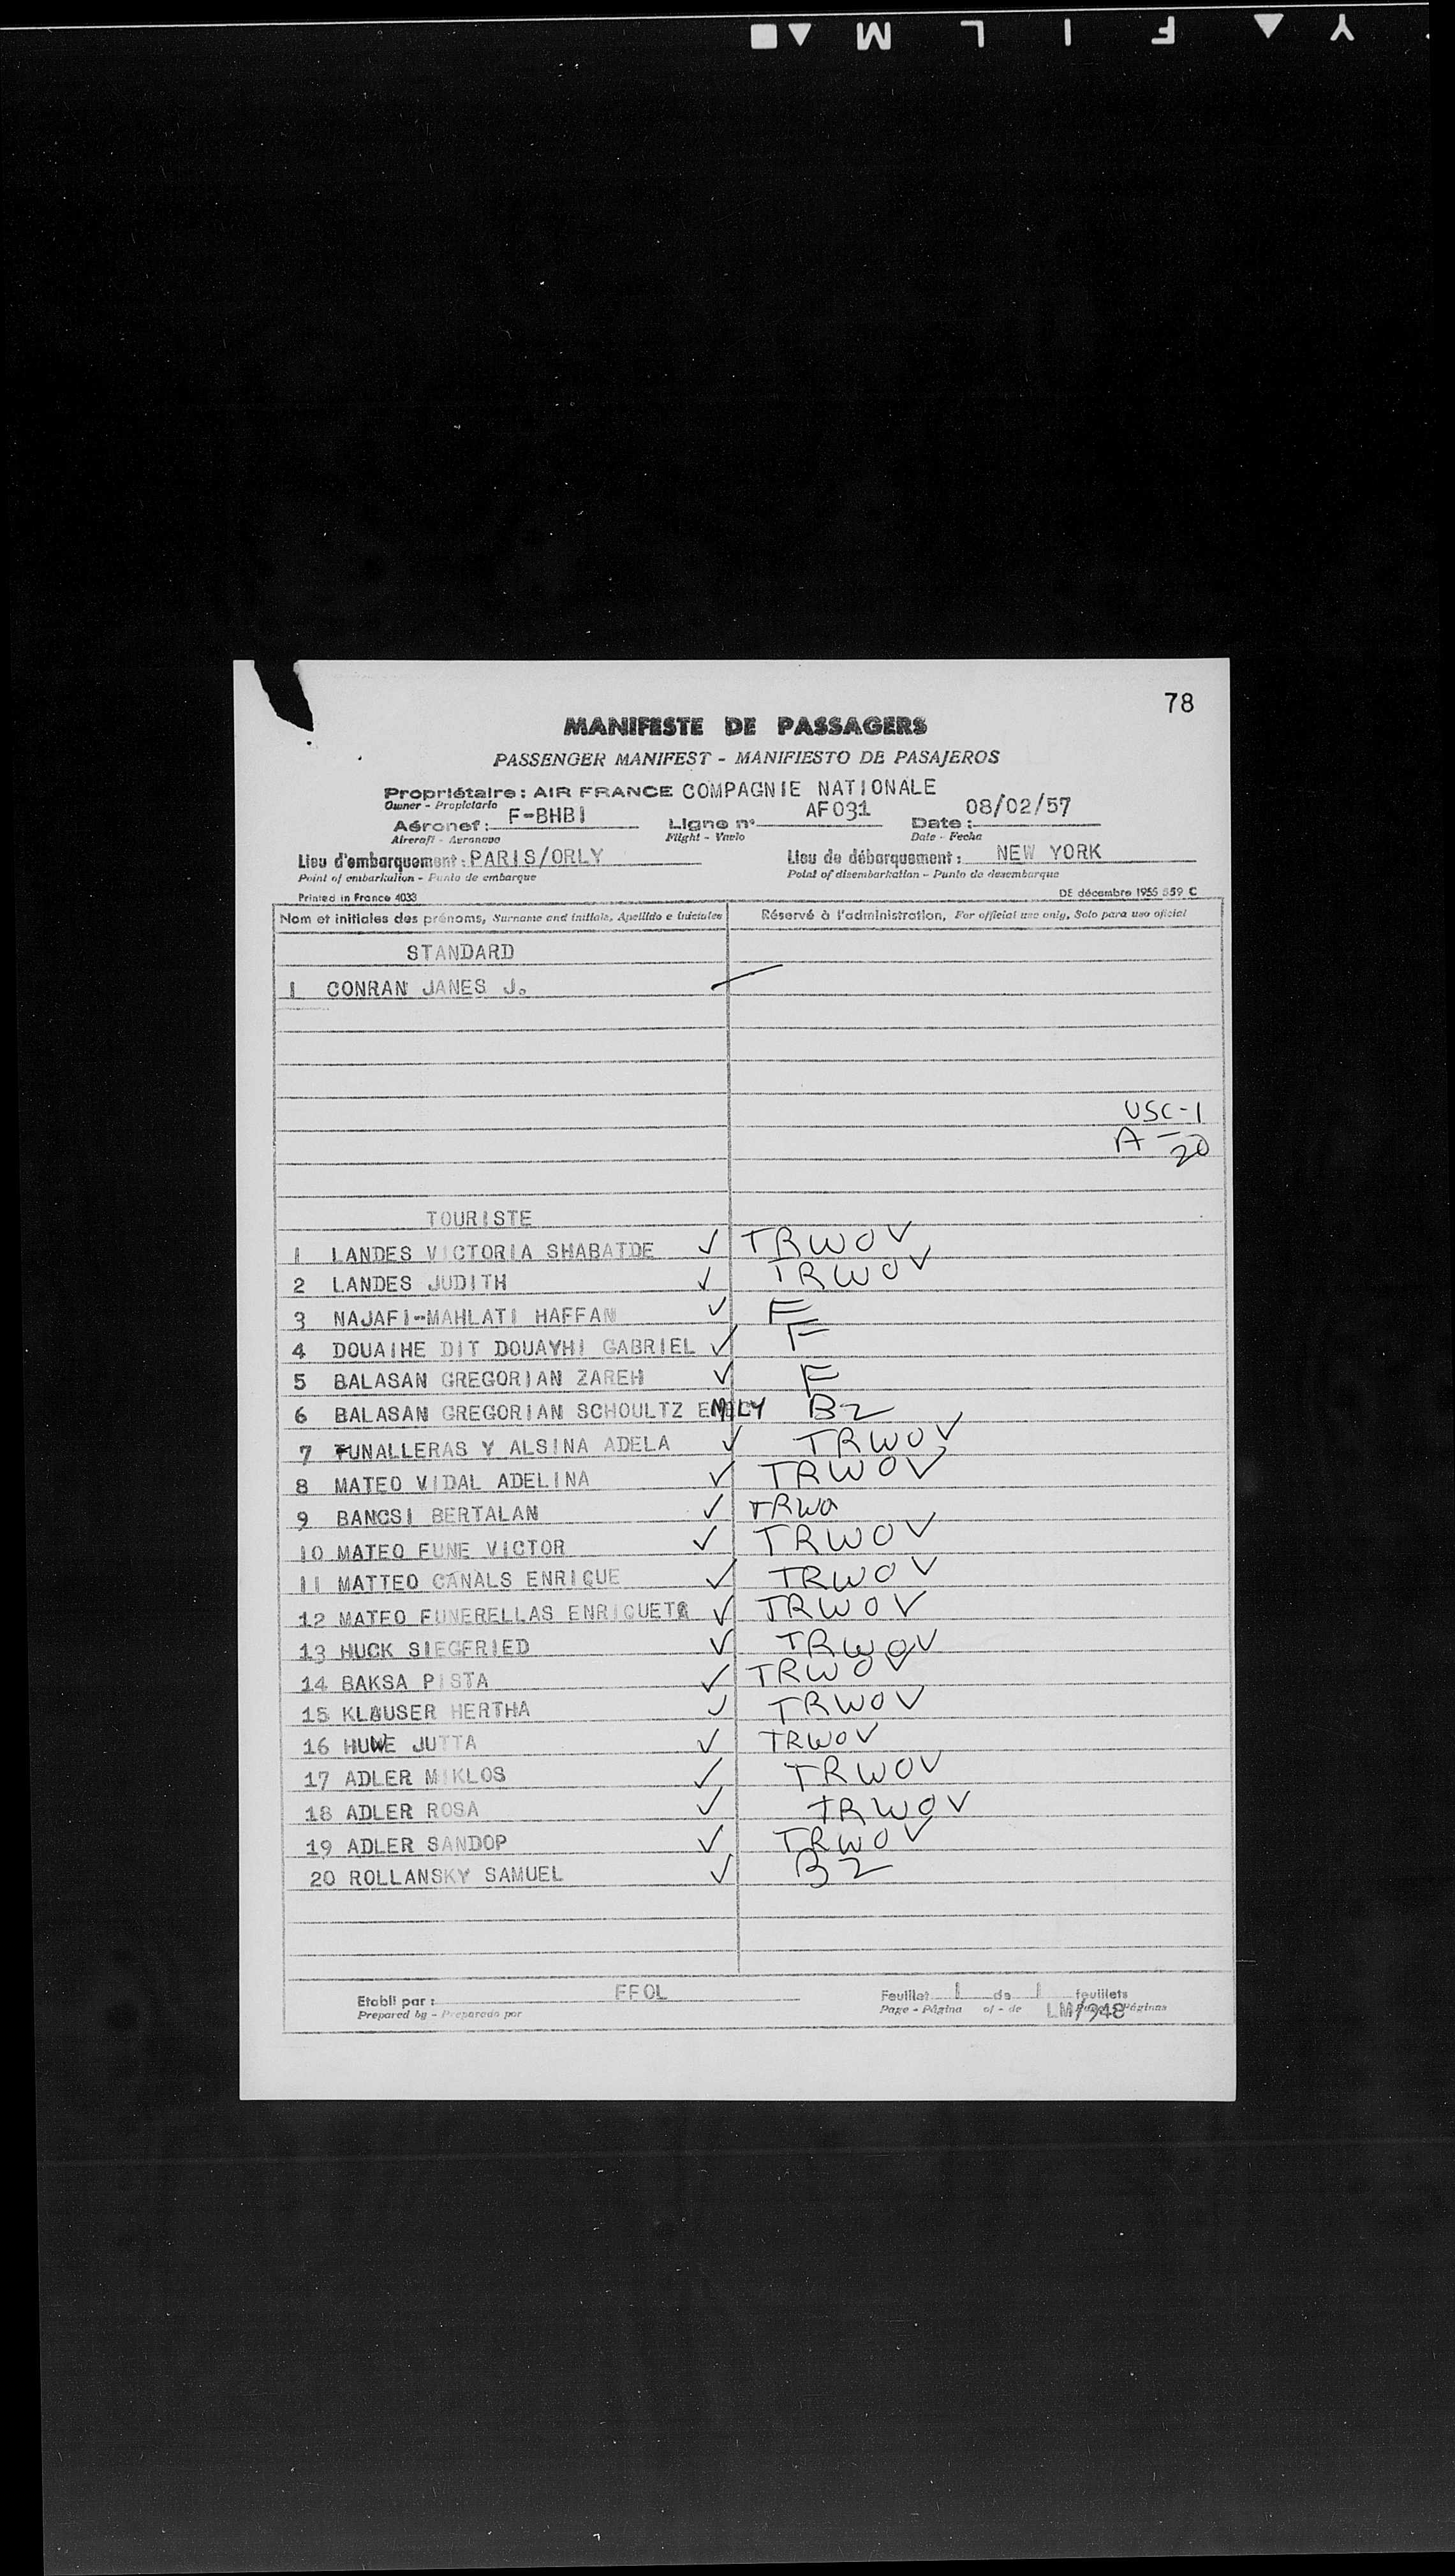 78
MANIFESTE DE PASSAGERS
PASSENGER MANIFEST - MANIFIESTO DE PASAJEROS
Propriétaire : AIR FRANCE COMPAGNIE NATIONALE
Owner - Propietario
Aéronef : F-BHBI Ligne n° AF031 Date : 08/02/57
Aircraft - Aeronave Flight - Vuelo Date - Fecha
Lieu d'embarquement : PARIS/ORLY Lieu de débarquement : NEW YORK
Point of embarkation - Punto de embarque Point of disembarkation - Punto de desembarque
Printed in France 4033 DE décembre 1955 559 C
Nom et initiales des prénoms, Surname and initials, Apellido e iniciales Réservé à l'administration, For official use only, Solo para uso oficial
STANDARD
1 CONRAN JANES J.
USC-1
A - 20
TOURISTE
1 LANDES VICTORIA SHABATDE ✓ TRWOV
2 LANDES JUDITH ✓ TRWOV
3 NAJAFI-MAHLATI HAFFAN ✓ F
4 DOUAIHE DIT DOUAYHI GABRIEL ✓ F
5 BALASAN GREGORIAN ZAREH ✓ F
6 BALASAN GREGORIAN SCHOULTZ EMILY B2
7 FUNALLERAS Y ALSINA ADELA ✓ TRWOV
8 MATEO VIDAL ADELINA ✓ TRWOV
9 BANCSI BERTALAN ✓ TRWO
10 MATEO FUNE VICTOR ✓ TRWOV
11 MATTEO CANALS ENRIQUE ✓ TRWOV
12 MATEO FUNERELLAS ENRIQUETA ✓ TRWOV
13 HUCK SIEGFRIED ✓ TRWOV
14 BAKSA PISTA ✓ TRWOV
15 KLAUSER HERTHA ✓ TRWOV
16 HUWE JUTTA ✓ TRWOV
17 ADLER MIKLOS ✓ TRWOV
18 ADLER ROSA ✓ TRWOV
19 ADLER SANDOP ✓ TRWOV
20 ROLLANSKY SAMUEL ✓ B2
Etabli par : FFOL Feuillet 1 de 1 feuillets
Prepared by - Preparado por Page - Página of - de Páginas
LM/948